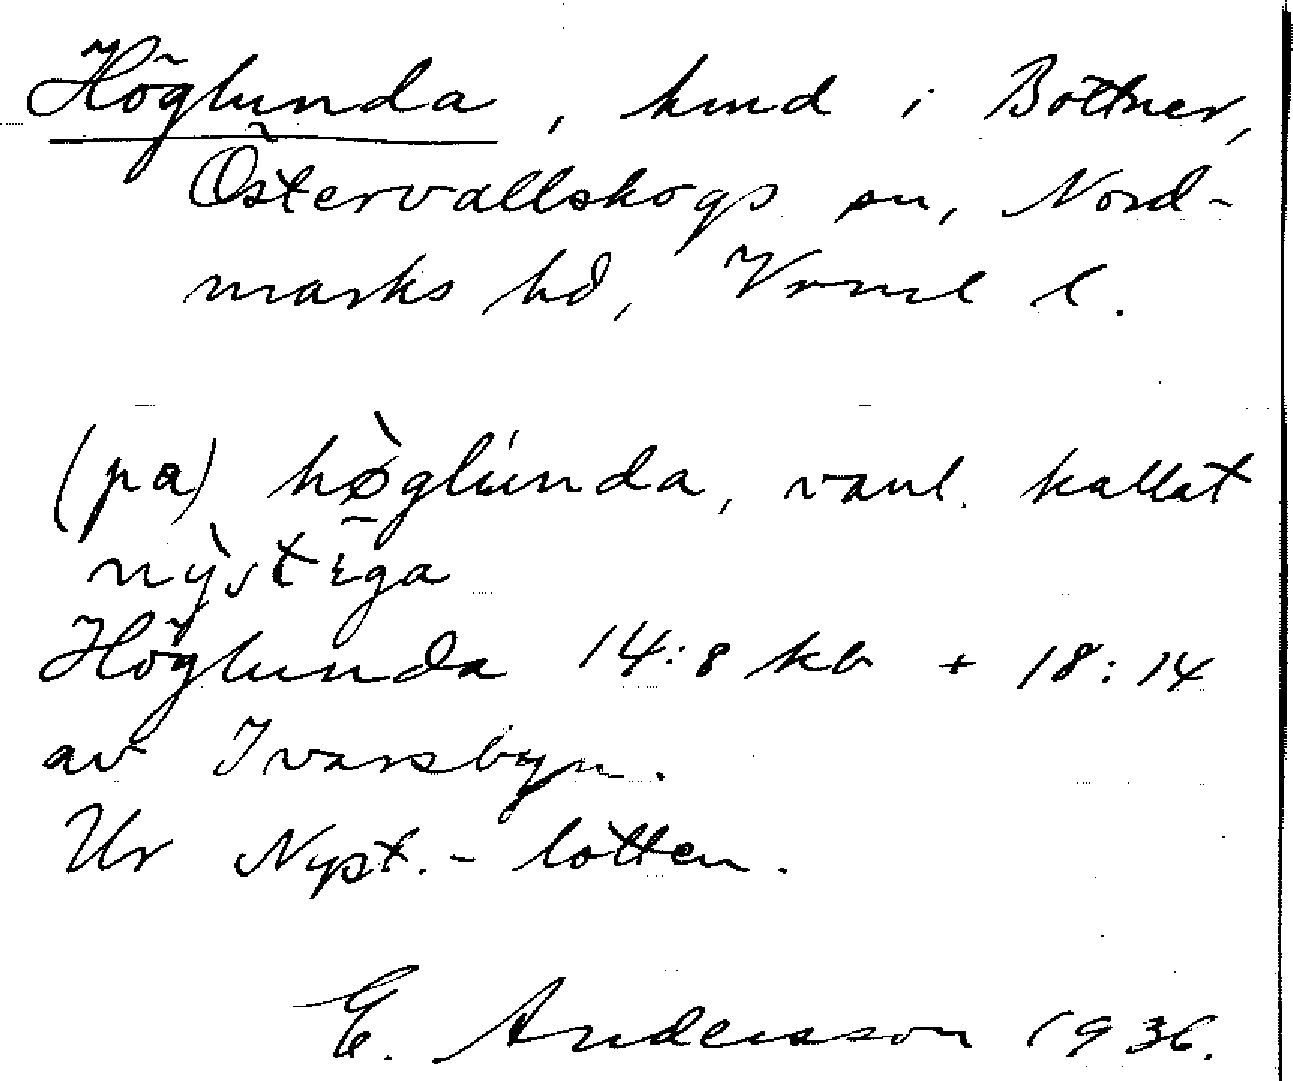 Höglunda, hmd i Bottner,
Östervallskogs sn, Nord-
marks hd, Värml l.
(pa) hø̀glúnda, vanl. kallat
nỳstɪ̄ga
Höglunda 14:8 kb + 18:14
av Ivarsbyn.
Ur Nyst.-lotten.
E. Andersson 1936.